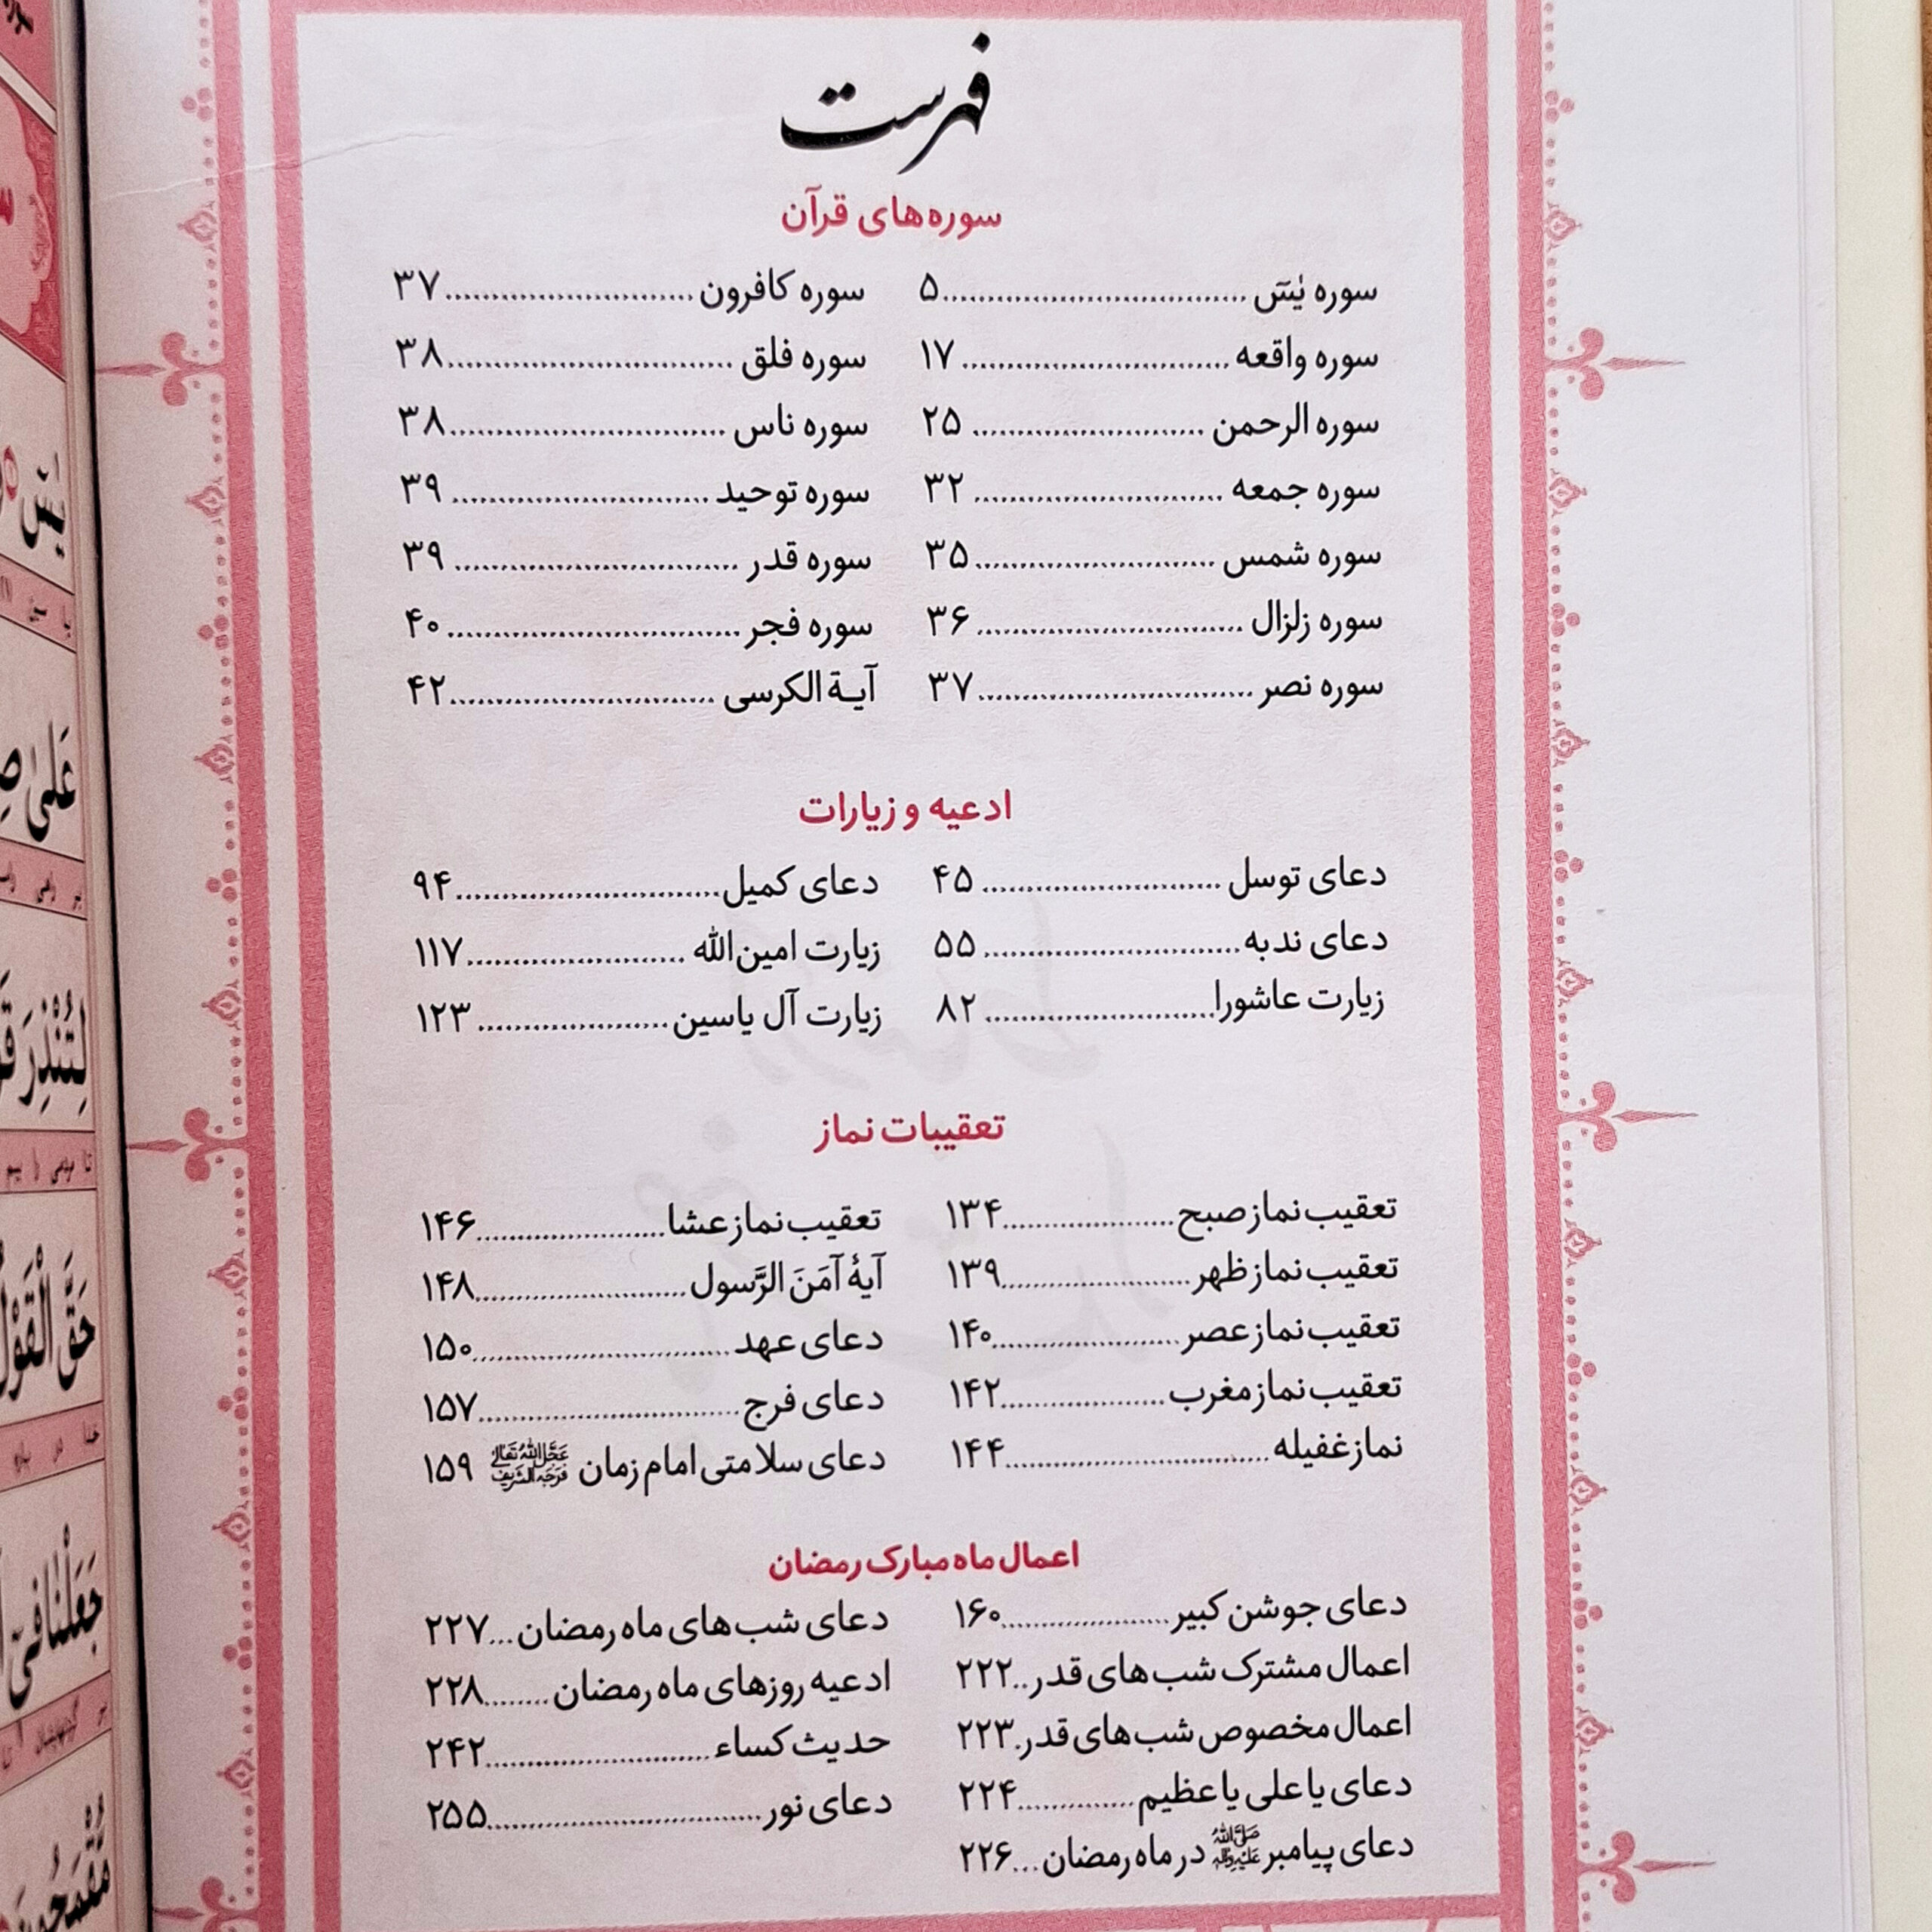 فهرست
سوره‌های قرآن
سوره یٰسٓ ۵
سوره واقعه ۱۷
سوره الرحمن ۲۵
سوره جمعه ۳۲
سوره شمس ۳۵
سوره زلزال ۳۶
سوره نصر ۳۷
سوره کافرون ۳۷
سوره فلق ۳۸
سوره ناس ۳۸
سوره توحید ۳۹
سوره قدر ۳۹
سوره فجر ۴۰
آیـة الکرسی ۴۲
ادعیه و زیارات
دعای توسل ۴۵
دعای ندبه ۵۵
زیارت عاشورا ۸۲
دعای کمیل ۹۴
زیارت امین‌الله ۱۱۷
زیارت آل یاسین ۱۲۳
تعقیبات نماز
تعقیب نماز صبح ۱۳۴
تعقیب نماز ظهر ۱۳۹
تعقیب نماز عصر ۱۴۰
تعقیب نماز مغرب ۱۴۲
نماز غفیله ۱۴۴
تعقیب نماز عشا ۱۴۶
آیهٔ آمَنَ الرَّسول ۱۴۸
دعای عهد ۱۵۰
دعای فرج ۱۵۷
دعای سلامتی امام زمان عَجَّلَ اللهُ تَعَالیٰ فَرَجَهُ الشَّرِیف ۱۵۹
اعمال ماه مبارک رمضان
دعای جوشن کبیر ۱۶۰
اعمال مشترک شب‌های قدر ۲۲۲
اعمال مخصوص شب‌های قدر ۲۲۳
دعای یا علی یا عظیم ۲۲۴
دعای پیامبر صَلَّی اللهُ عَلَیْهِ وَآلِه در ماه رمضان ۲۲۶
دعای شب‌های ماه رمضان ۲۲۷
ادعیه روزهای ماه رمضان ۲۲۸
حدیث کساء ۲۴۲
دعای نور ۲۵۵
عَلیٰ
لِتُنْذِرَ
حَقَّ الْقَوْلُ
جَعَلْنا فی